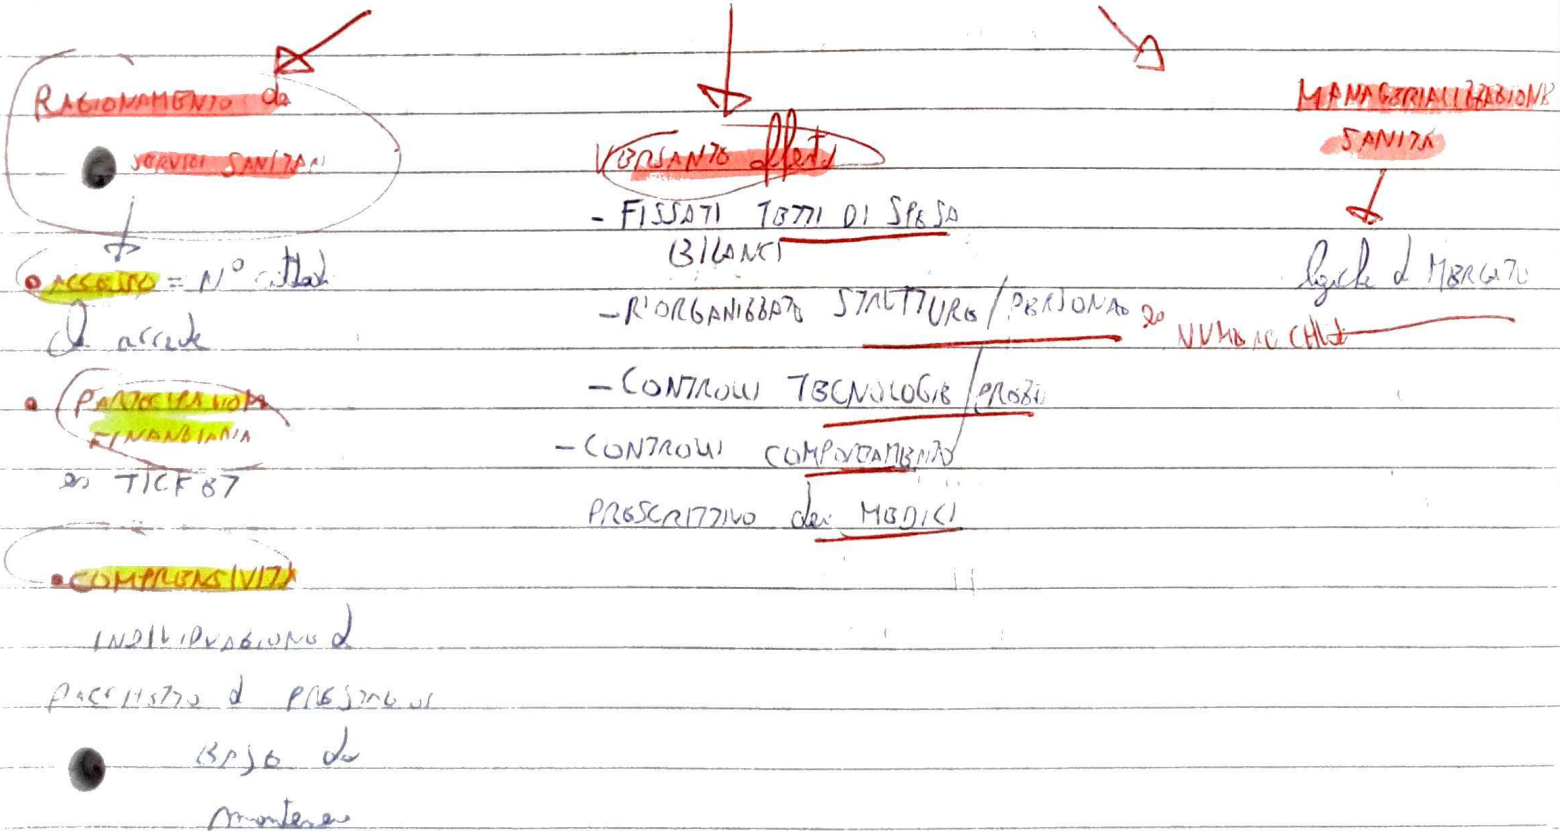 RAGIONAMENTO da
SERVIZI SANITARI
• ACCESSO = N° cittad
che accede
• PARTECIPAZIONE
FINANZIARIA
es TICKET
• COMPRENSIVITÀ
INDIVIDUAZIONE di
PACCHETTO di PRESTAZIONI
BASE da
mantenere
VERSANTE offerta
- FISSATI TETTI DI SPESA
BILANCI
- RIORGANIZZATO STRUTTURE/PERSONALE es NUMERO CHIUSO
- CONTROLLI TECNOLOGIE/PREZZI
- CONTROLLI COMPORTAMENTO
PRESCRITTIVO dei MEDICI
MANAGERIALIZZAZIONE
SANITÀ
logiche di MERCATO